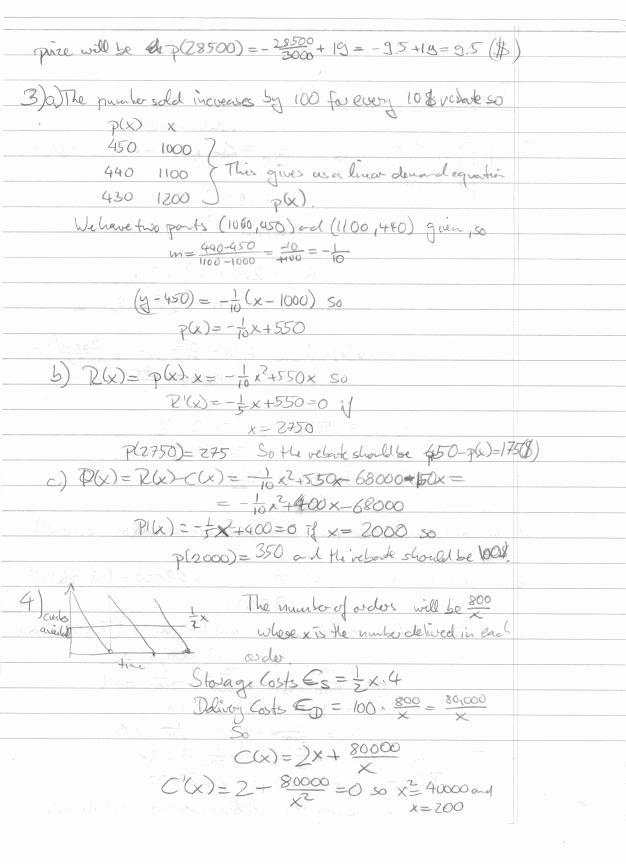 prize will be p(28500) = -28500/3000 + 19 = -9.5+19 = 9.5 ($)
3)a) The number sold increases by 100 for every 10$ rebate so
p(x) x
450 1000
440 1100 } This gives us a linear demand equation
430 1200 p(x).
We have two points (1000,450) and (1100,440) given, so
m = 440-450/1100-1000 = -10/+100 = -1/10
(y-450) = -1/10(x-1000) so
p(x) = -1/10x+550
b) R(x) = p(x)·x = -1/10x²+550x so
R'(x) = -1/5x+550=0 if
x = 2750
p(2750) = 275 So the rebate should be 450-p(x)=175($)
c) P(x) = R(x)-C(x) = -1/10x²+550x-68000-150x =
= -1/10x²+400x-68000
P'(x) = -1/5x+400=0 if x = 2000 so
p(2000) = 350 and the rebate should be 100$.
4) 1/2x
time
The number of orders will be 800/x
where x is the number delived in each
order.
Storage Costs Cs = 1/2x·4
Delivery Costs CD = 100·800/x = 80,000/x
So
C(x) = 2x + 80000/x
C'(x) = 2 - 80000/x² = 0 so x² = 40000 and
x = 200